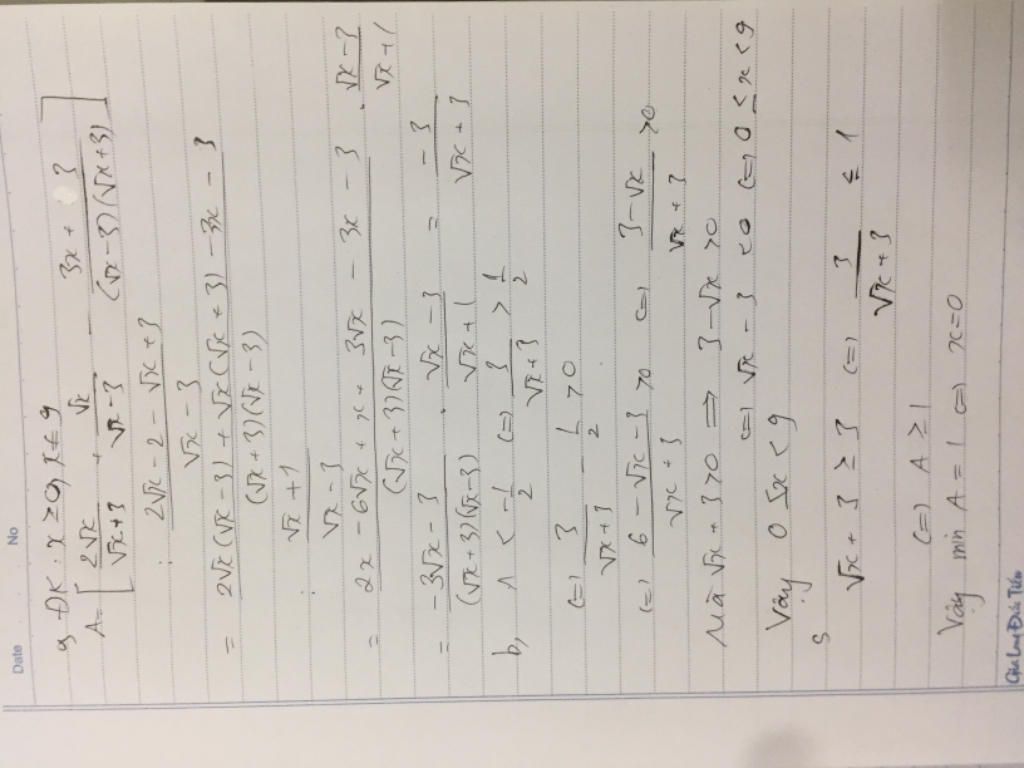 Date No
a, ĐK: x ≥ 0, x ≠ 9
A = [ 2√x/(√x+3) + √x/(√x-3) - (3x+3)/((√x-3)(√x+3)) ]
: (2√x - 2 - √x + 3)/(√x - 3)
= (2√x(√x-3) + √x(√x+3) - 3x - 3)/((√x+3)(√x-3))
: (√x+1)/(√x-3)
= (2x - 6√x + x + 3√x - 3x - 3)/((√x+3)(√x-3)) . (√x-3)/(√x+1)
= (-3√x - 3)/((√x+3)(√x-3)) . (√x-3)/(√x+1) = -3/(√x+3)
b, A < -1/2 (=) 3/(√x+3) > 1/2
(=) 3/(√x+3) - 1/2 > 0
(=) (6 - √x - 3)/(√x+3) > 0 (=) (3-√x)/(√x+3) > 0
Mà √x + 3 > 0 => 3 - √x > 0
(=) √x - 3 < 0 (=) 0 ≤ x < 9
Vậy 0 ≤ x < 9
√x + 3 ≥ 3 (=) 3/(√x+3) ≤ 1
(=) A ≥ 1
Vậy min A = 1 (=) x=0